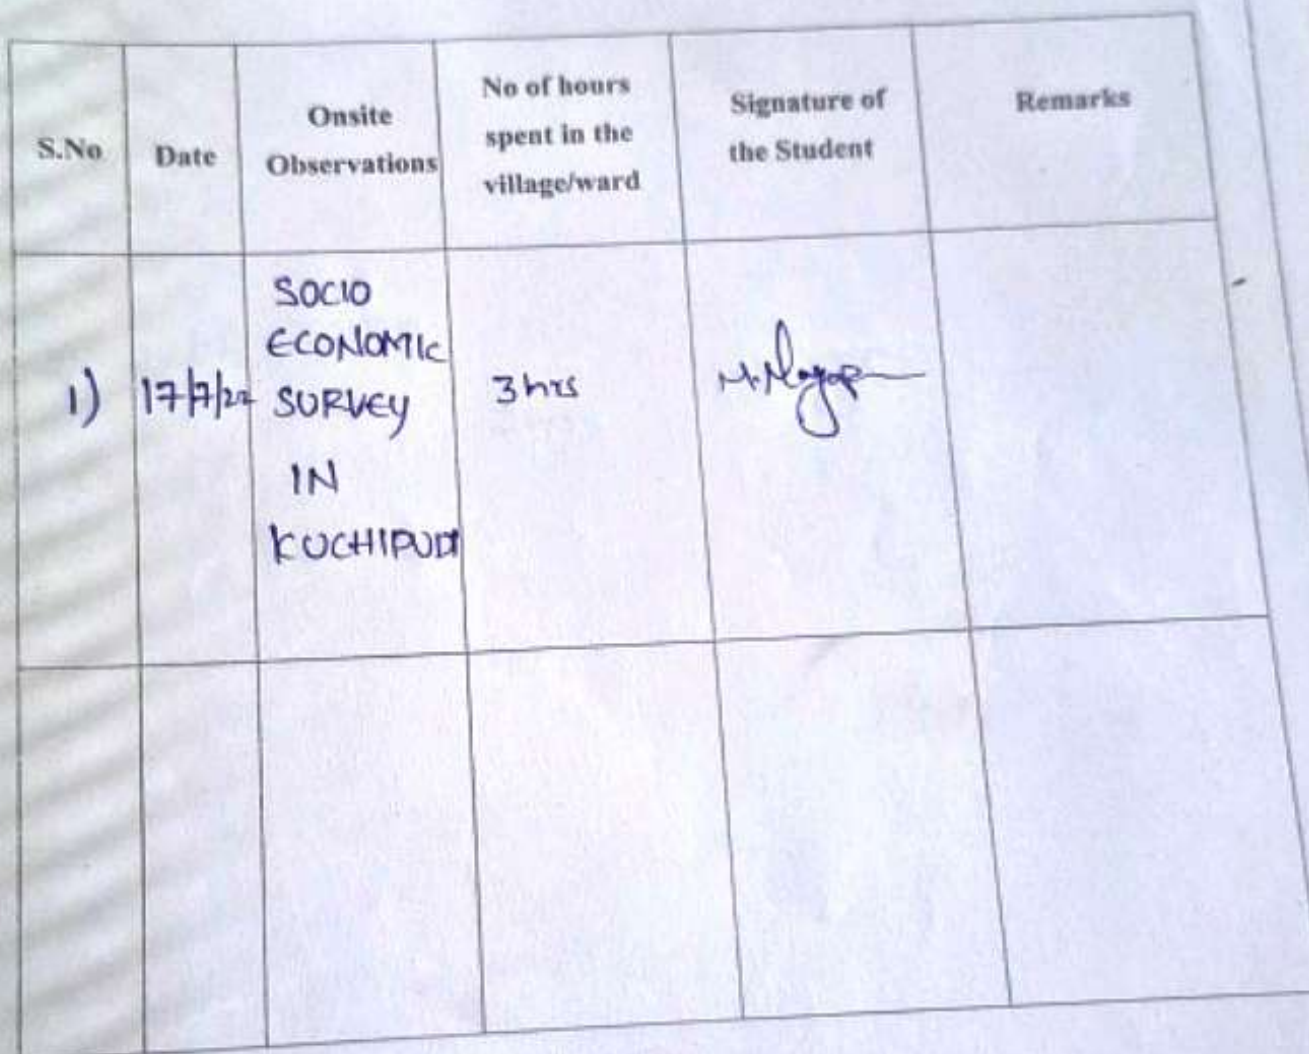 S.No
Date
Onsite
Observations
No of hours
spent in the
village/ward
Signature of
the Student
Remarks
1)
17/7/22
SOCIO
ECONOMIC
SURVEY
IN
KUCHIPUDI
3 hrs